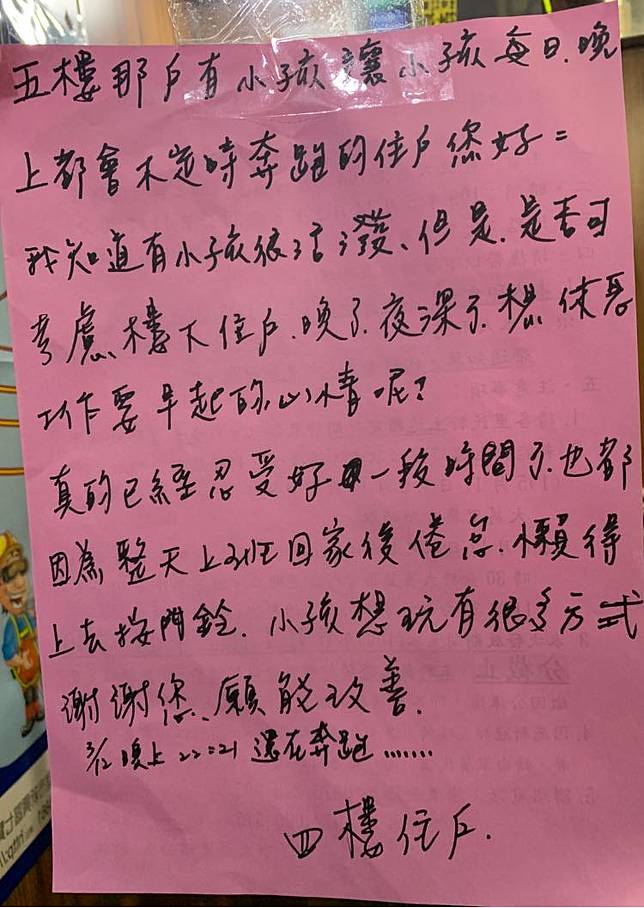 五樓那戶有小孩讓小孩每日.晚
上都會不定時奔跑的住戶您好=
我知道有小孩很活潑、但是.是否可
考慮樓下住戶.晚了.夜深了.想休息
工作要早起的心情呢?
真的已經忍受好一段時間了.也都
因為整天上班回家後倦怠.懶得
上去按門鈴.小孩想玩有很多方式
謝謝您.願能改善.
3/12晚上22:21還在奔跑.......
四樓住戶.